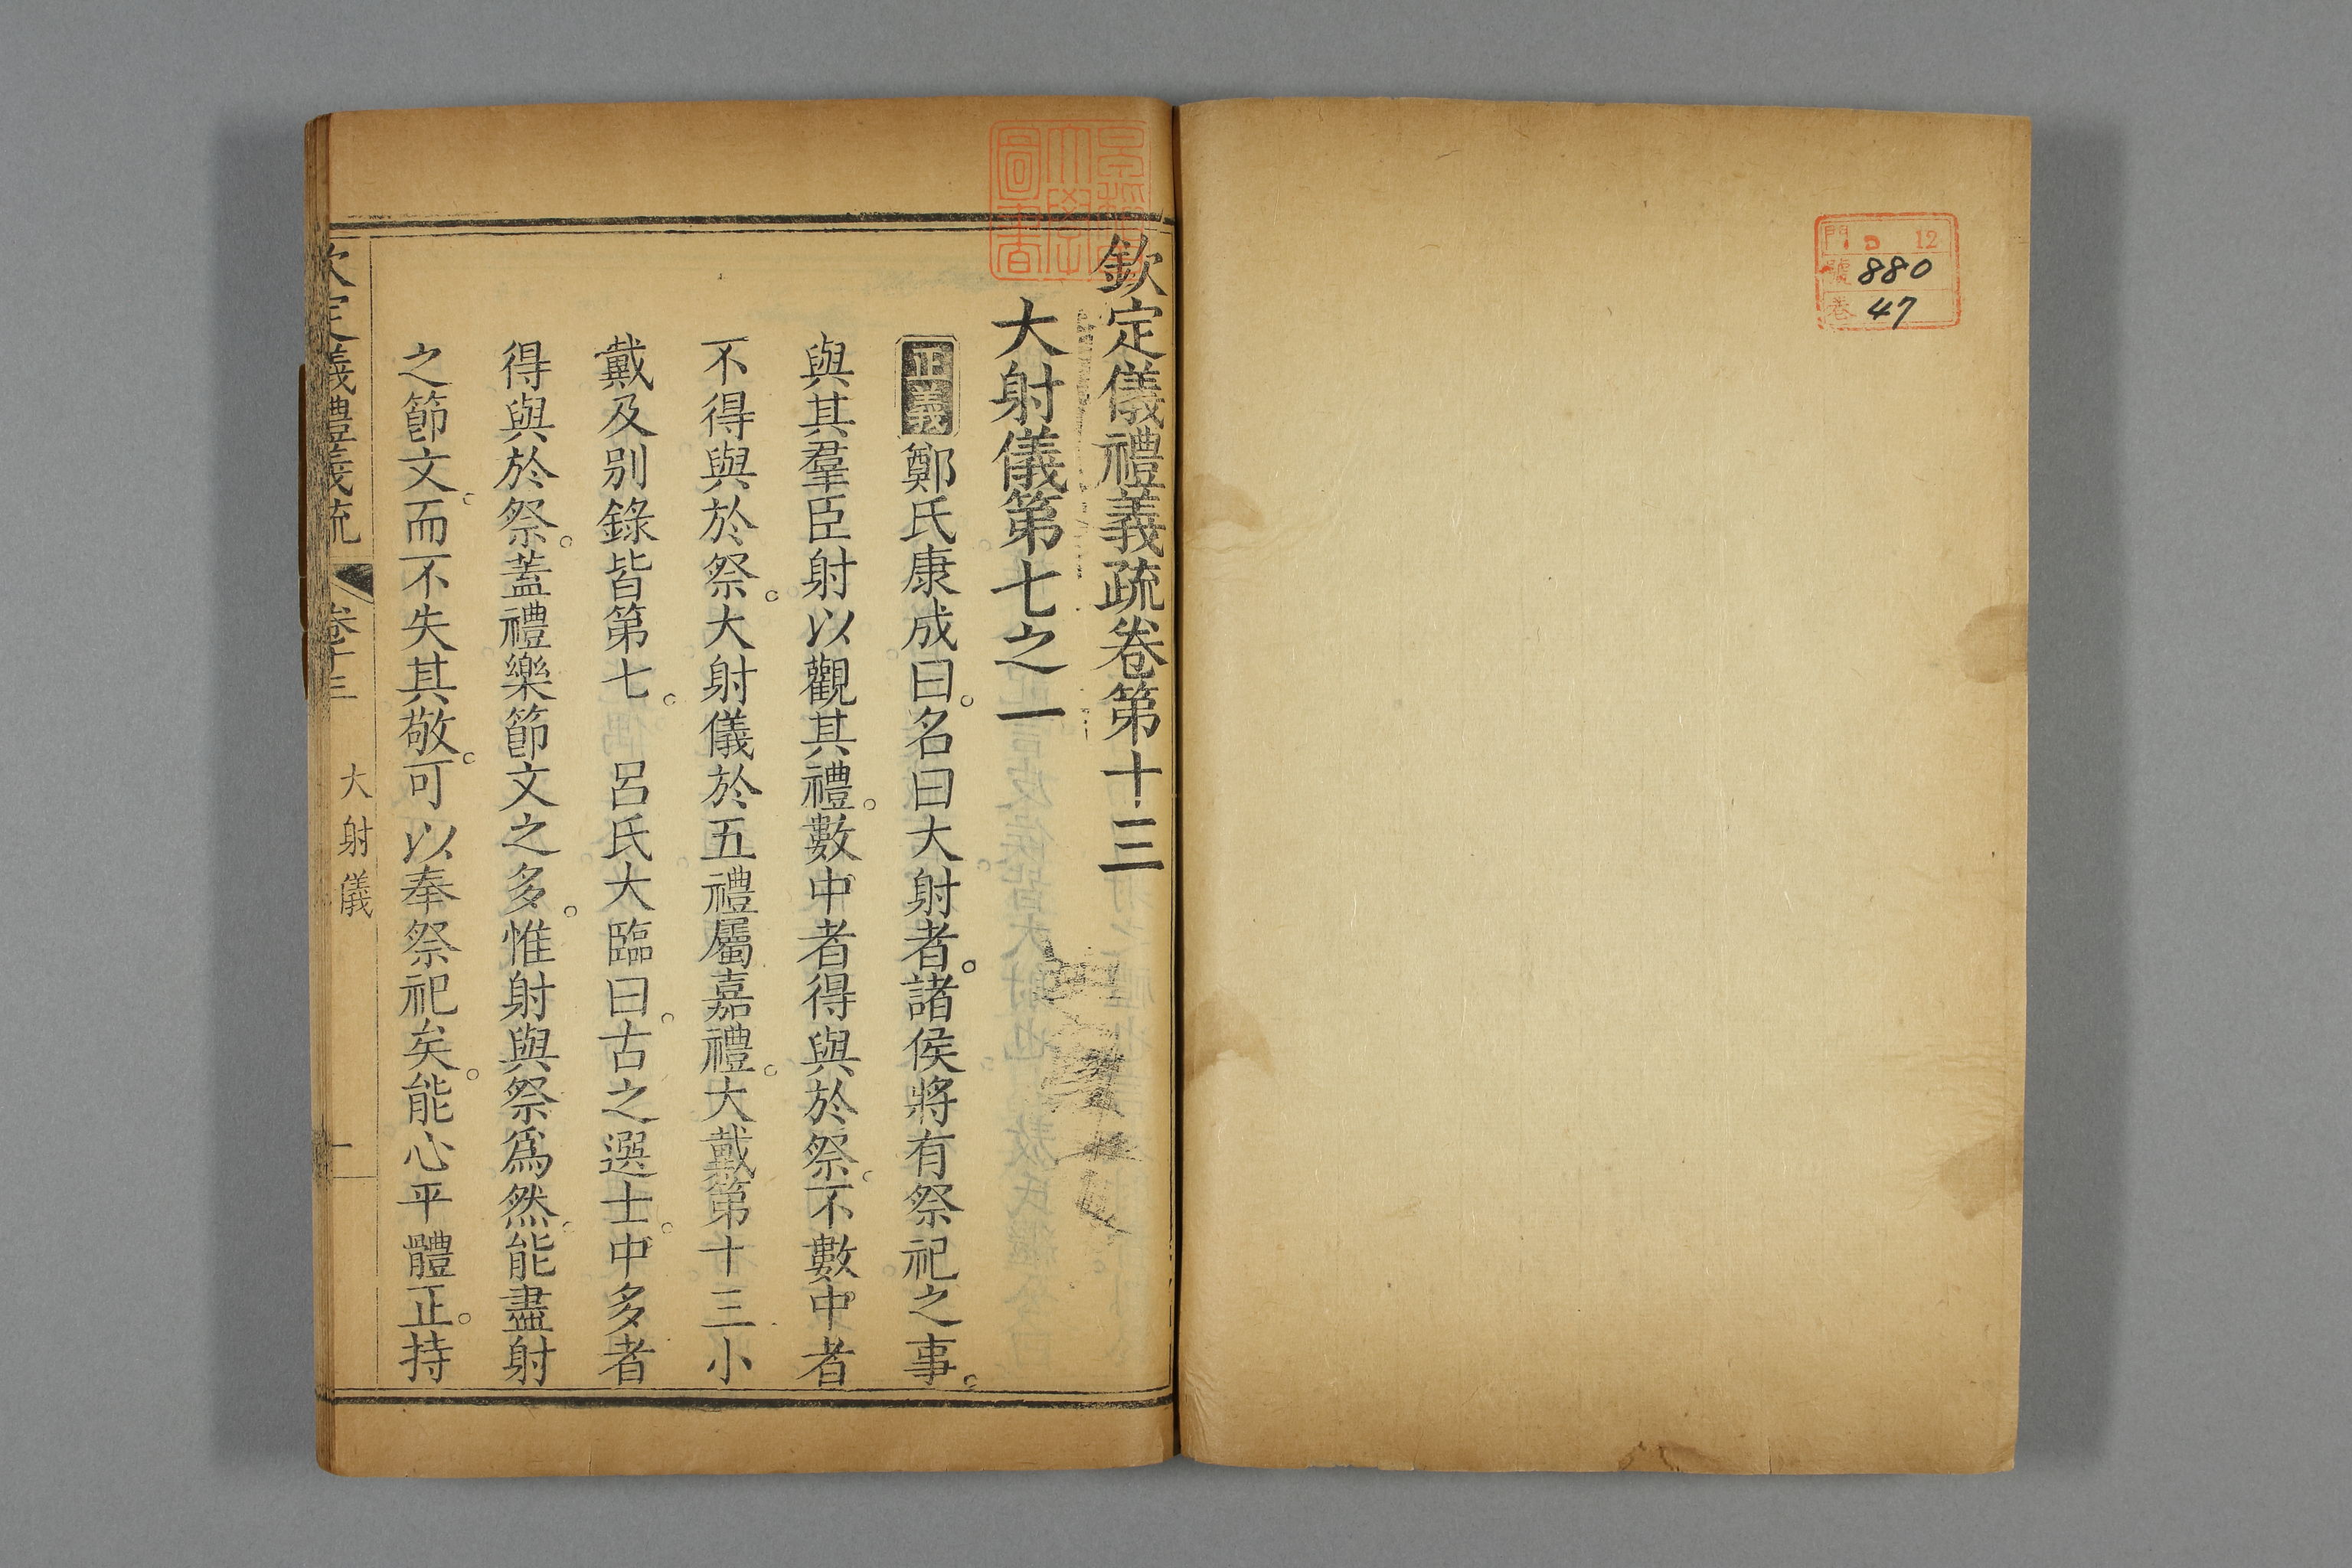 門 ロ 12
號 880
卷 47
欽定儀禮義疏卷第十三
大射儀第七之一
正義鄭氏康成曰。名曰大射者。諸侯將有祭祀之事。
與其羣臣射以觀其禮。數中者得與於祭。不數中者
不得與於祭。大射儀於五禮屬嘉禮。大戴第十三小
戴及别錄皆第七。 呂氏大臨曰。古之選士。中多者
得與於祭。蓋禮樂節文之多。惟射與祭爲然。能盡射
之節文。而不失其敬。可以奉祭祀矣。能心平體正。持
欽定儀禮義疏 卷十三 大射儀 一